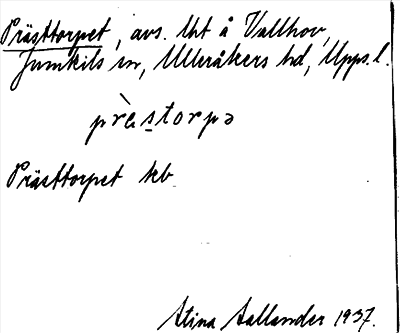 Prästtorpet, avs. lht å Vallhov,
Jumkils sn, Ulleråkers hd, Upps. l.
prèstorpə
Prästtorpet kb
Stina Aallander 1937.